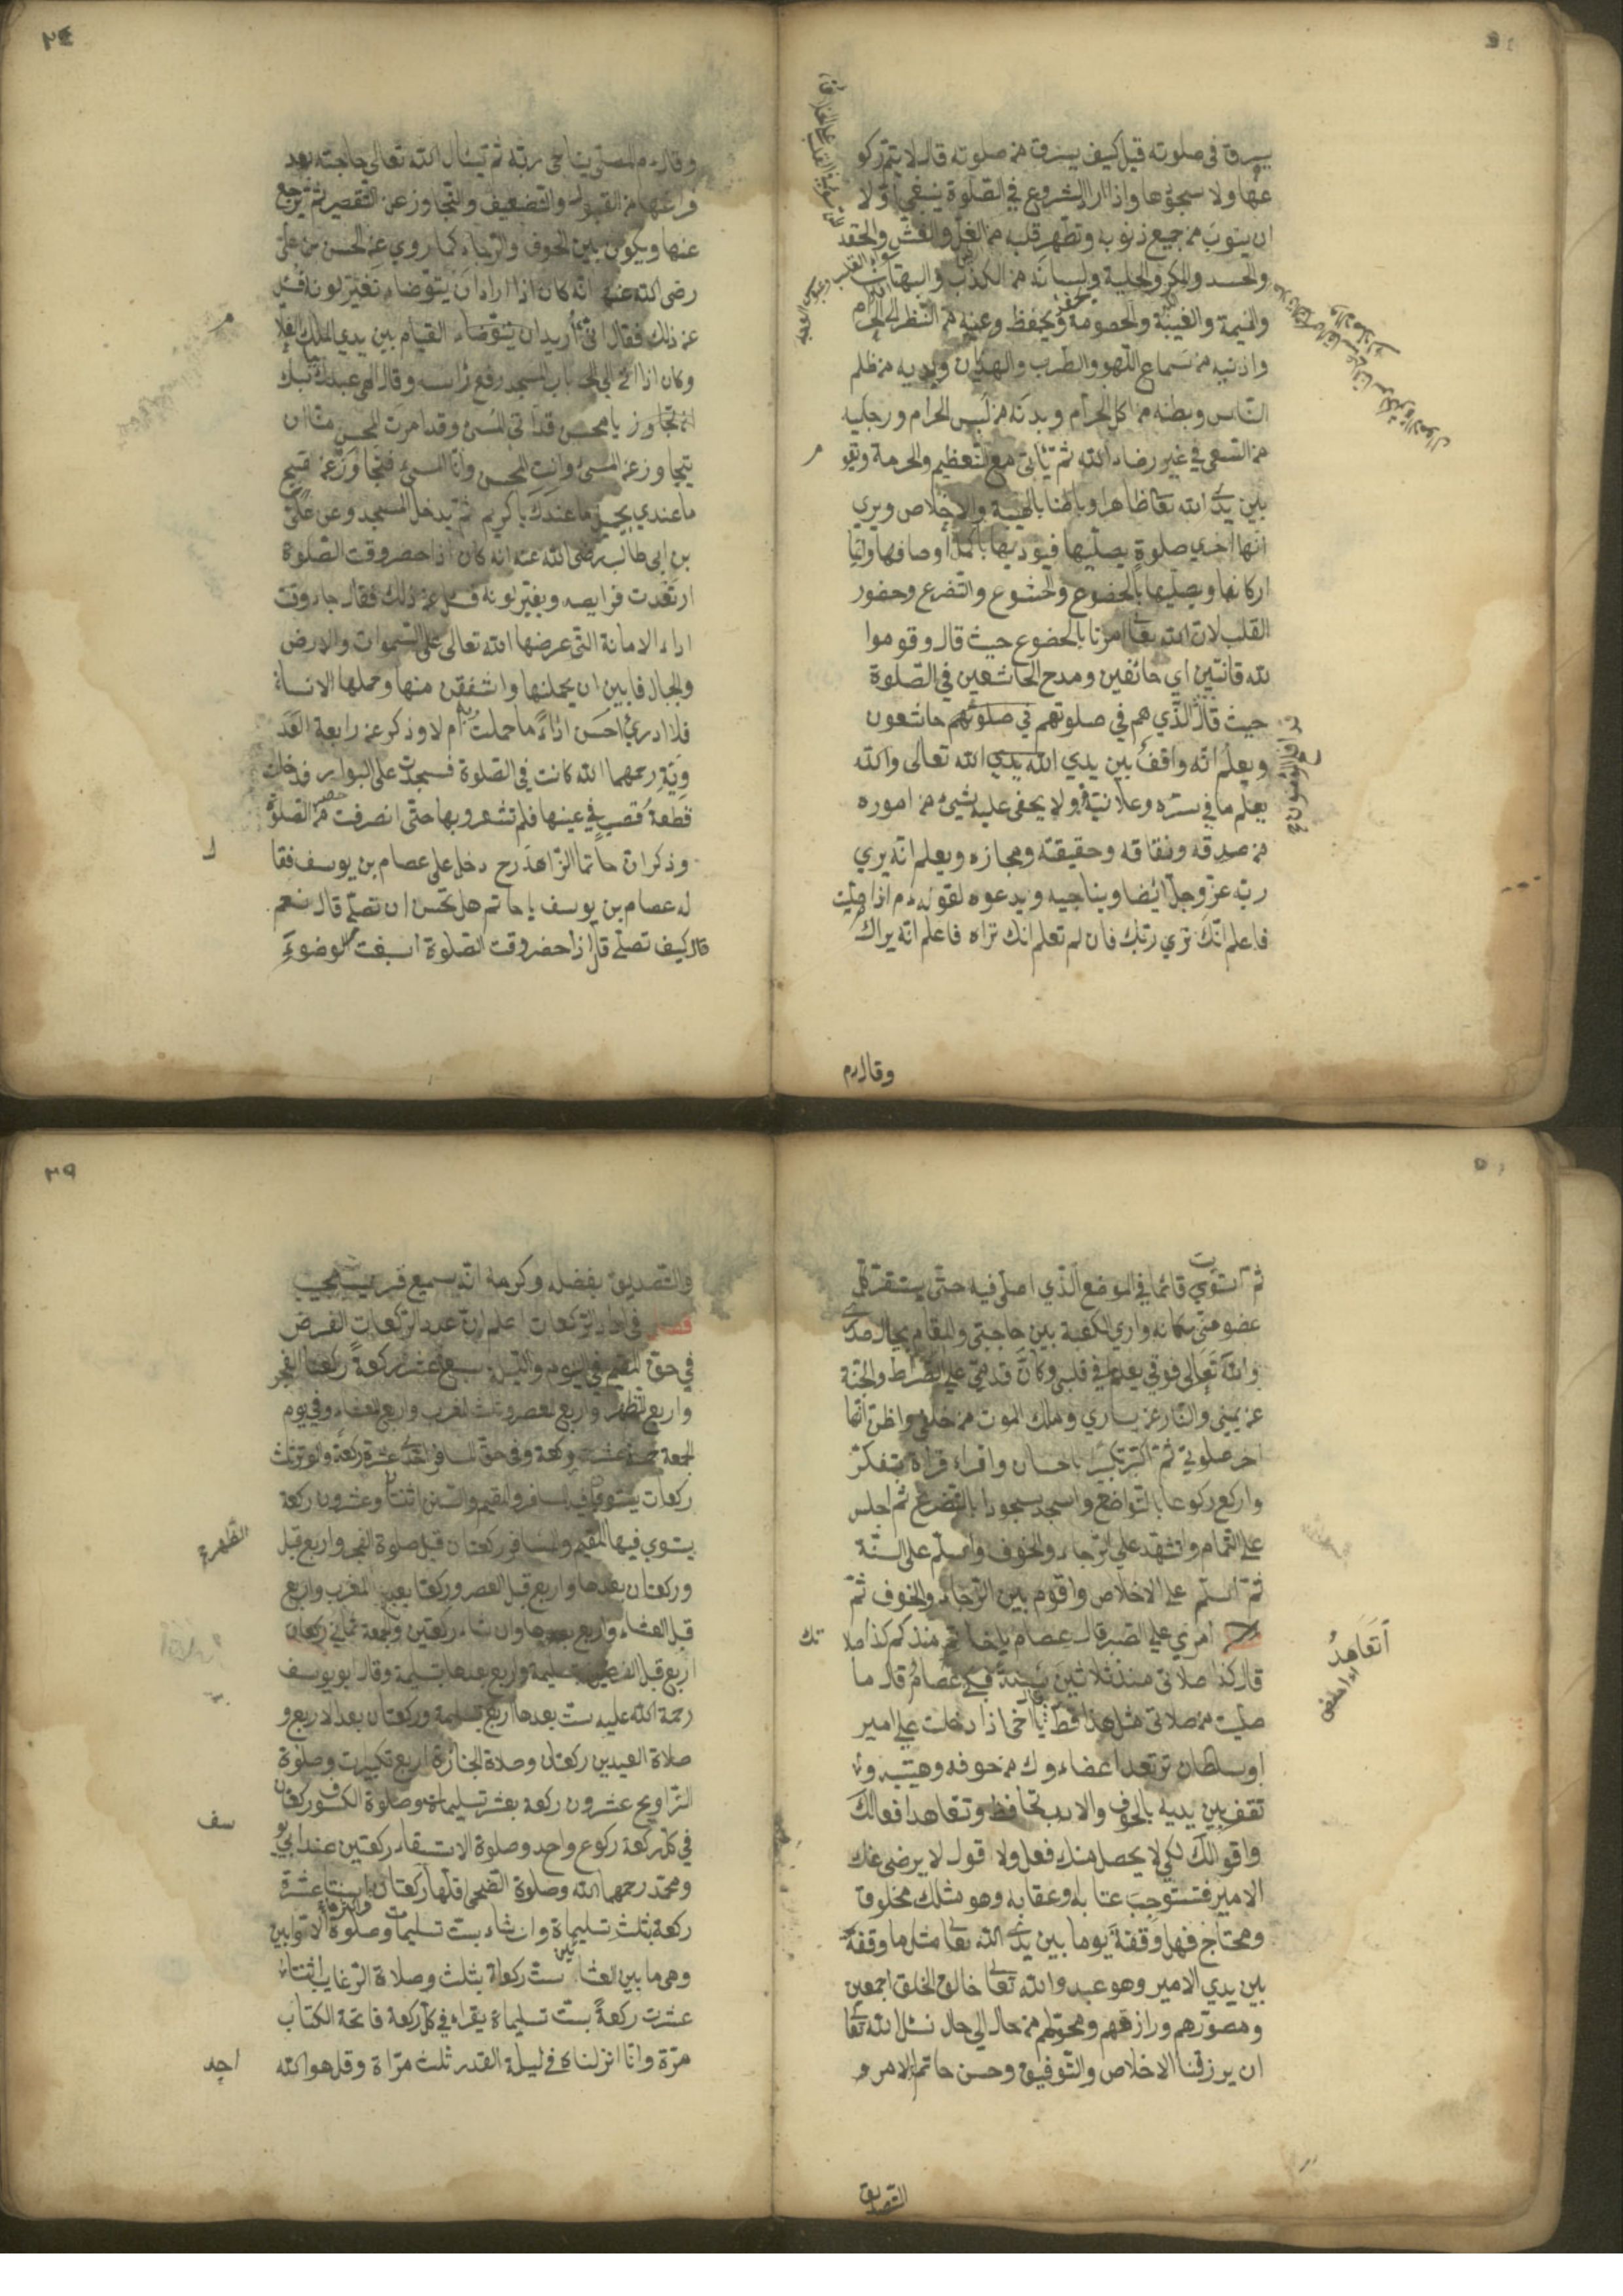 يسرق في صلوته قيل كيف يسرق من صلوته قال لا يتم ركو
عها ولا سجودها واذا اراد الشروع في الصلوة ينبغي اولا
ان يتوب من جميع ذنوبه وتطهر قلبه من الغل والغش والحقد
والحسد والمكر والحيلة ولسانه من الكذب والبهتان
والنميمة والغيبة والخصومة ويحفظ وعينه من النظر الى الحرام
واذنيه من سماع اللهو والطرب والهذيان ويديه من ظلم
الناس وبطنه من اكل الحرام وبدنه من لبس الحرام ورجليه
من السعى في غير رضاء الله ثم يأتى مع التعظيم والحرمة ويقو
بين يدي الله تعا ظاهرا وباطنا بالنية والاخلاص ويرى
انها اخرى صلوة يصليها فيوديها باكمل اوصافها
اركانها ويصليها بالخضوع والخشوع والتضرع وحضور
القلب لان الله تعا امرنا بالخضوع حيث قال وقوموا
لله قانتين اي خائفين ومدح الخاشعين في الصلوة
حيث قال الذي هم في صلوتهم في صلوتهم خاشعون
ويعلم انه واقف بين يدي الله يدي الله تعالى والله
يعلم ما في سره وعلانيته ولا يخفى عليه شيئ من اموره
من صدقه ونفاقه وحقيقته ومجازه ويعلم انه يرى
ربه عز وجل ايضا ويناجيه ويدعوه لقوله م اذا صليت
فاعلم انك ترى ربك فان لم تعلم انك تراه فاعلم انه يراك
وقال م
٢٤
وقال م المصلى يناجى ربه ثم يسأل الله تعالى حاجته بعد
فراغها من القبول والتضعيف والتجاوز عن التقصير ثم يرجع
عنها ويكون بين الخوف والرجاء كما روي عن الحسن بن على
رضى الله عنه انه كان اذا اراد ان يتوضاء تغير لونه فقيل
عن ذلك فقال انى اريد ان يتوضاء القيام بين يدي الملك
وكان اذا اتى الى باب المسجد رفع رأسه وقال الهى عبدك ببابك
يا محسن قد اتى المسئ وقد امرت المحسن منا ان
يتجاوز عن المسئ وانت المحسن وانا المسئ فتجاوز عن قبيح
ما عندي بجميل ما عندك يا كريم ثم يدخل المسجد وعن على
بن ابى طالب رضى الله عنه انه كان اذا حضر وقت الصلوة
ارتعدت فرايصه ويغير لونه فسئل عن ذلك فقال جاء وقت
اداء الامانة التى عرضها الله تعالى على السموات والارض
والجبال فابين ان يحملنها واشفقن منها وحملها الانسان
فلا ادري احسن اداء ما حملت به ام لا وذكر عن رابعة العد
وية رحمهما الله كانت في الصلوة فسجدت على البوار فدخلت
قطعة قصب في عينها فلم تشعر بها حتى انصرفت من الصلوة
وذكر ان حاتما الزاهد رح دخل على عصام بن يوسف فقا
له عصام بن يوسف يا حاتم هل تحسن ان تصلى قال نعم
قال كيف تصلى قال اذا حضر وقت الصلوة اسبغت الوضوء
ثم استوي قائما في الموضع الذي اصلى فيه حتى يستقر كل
عضو منى مكانه واري الكعبة بين حاجبى والمقام بحيال صدرى
والله تعالى فوقى يعلم ما في قلبى وكان قدمى على الصراط والجنة
عن يمينى والنار عن يساري وملك الموت من خلفى واظن انها
اخر صلوتى ثم اكبر تكبيرا باحسان واقراء قراة بتفكر
واركع ركوعا بالتواضع واسجد سجودا بالتضرع ثم اجلس
على التمام واتشهد على الرجاء والخوف واسلم على السنة
ثم اسلم على الاخلاص واقوم بين الرجاء والخوف ثم
امري على الصبر قال عصام يا حاتم منذكم كذا صلا
تك
اتعاهد
قال كذا صلاتى منذ ثلاثين سنة فبكى عصام قال ما
صليت من صلاتى مثل هذا قط يا اخى اذا دخلت على امير
او سلطان ترتعد اعضاءوك من خوفه وهيبته
تقف بين يديه بالخوف والادب تحافظ وتعاهد افعالك
واقوالك لكى لا يحصل منك فعل ولا قول لا يرضى عنك
الامير فتستوجب عتابه وعقابه وهو مثلك مخلوق
ومحتاج فهل وقفة يوما بين يدي الله تعا مثل ما وقفة
بين يدي الامير وهو عبد والله تعا خالق الخلق اجمعين
ومصورهم ورازقهم ومحولهم من حال الى حال نسئل الله تعا
ان يرزقنا الاخلاص والتوفيق وحسن خاتم الامر و
التصديق
٢٥
والتصديق بفضله وكرمه انه سميع قريب مجيب
فصل في اعداد الركعات اعلم ان عدد الركعات الفرض
في حق المقيم في اليوم والليل سبع عشر ركعة ركعتا الفجر
واربع الظهر واربع العصر وثلث المغرب واربع العشاء وفي يوم
الجمعة خمسة عشرت ركعة وفى حق المسافر احدى عشرة ركعة والوتر ثلث
ركعات يستوي فيه المسافر والمقيم والسنن اثنتا وعشرون ركعة
يستوي فيها المقيم والمسافر ركعتان قبل صلوة الفجر واربع قبل
الظهر
وركعتان بعدها واربع قبل العصر وركعتا بعد المغرب واربع
قبل العشاء واربع بعدها وان شاء ركعتين والجمعة ثمانى ركعات
اربع قبل الفرض بتسليمة واربع عندها بتسليمة وقال ابو يوسف
رحمة الله عليه ست بعدها اربع بتسليمة وركعتان بعد الاربع و
صلاة العيدين ركعتان وصلاة الجنازة اربع تكبيرات وصلوة
التراويح عشرون ركعة بعشر تسليمات وصلوة الكسوف ركعتان
في كل ركعة ركوع واحد وصلوة الاستسقاء ركعتين عند ابي يو
سف
ومحمد رحمهما الله وصلوة الضحى اقلها ركعتان واثنتا عشرة
ركعة بثلث تسليماة وان شاء بست تسليمات وصلوة الاوابين
وهى ما بين العشائين ست ركعاة بثلث وصلاة الرغايب اثنتا
عشرت ركعة بست تسليماة يقراء في كل ركعة فاتحة الكتاب
مرة وانا انزلناه في ليلة القدر ثلث مراة وقل هو الله
احد